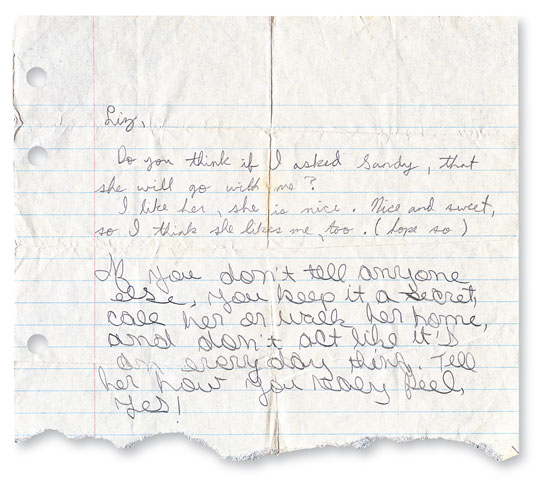 Liz,
Do you think if I asked Sandy, that
she will go with me?
I like her, she is nice. Nice and sweet,
so I think she likes me, too. (hope so)
If you don't tell anyone
else, you keep it a secret,
call her or walk her home,
and don't act like it's
an every day thing. Tell
her how you realy feel,
Yes!